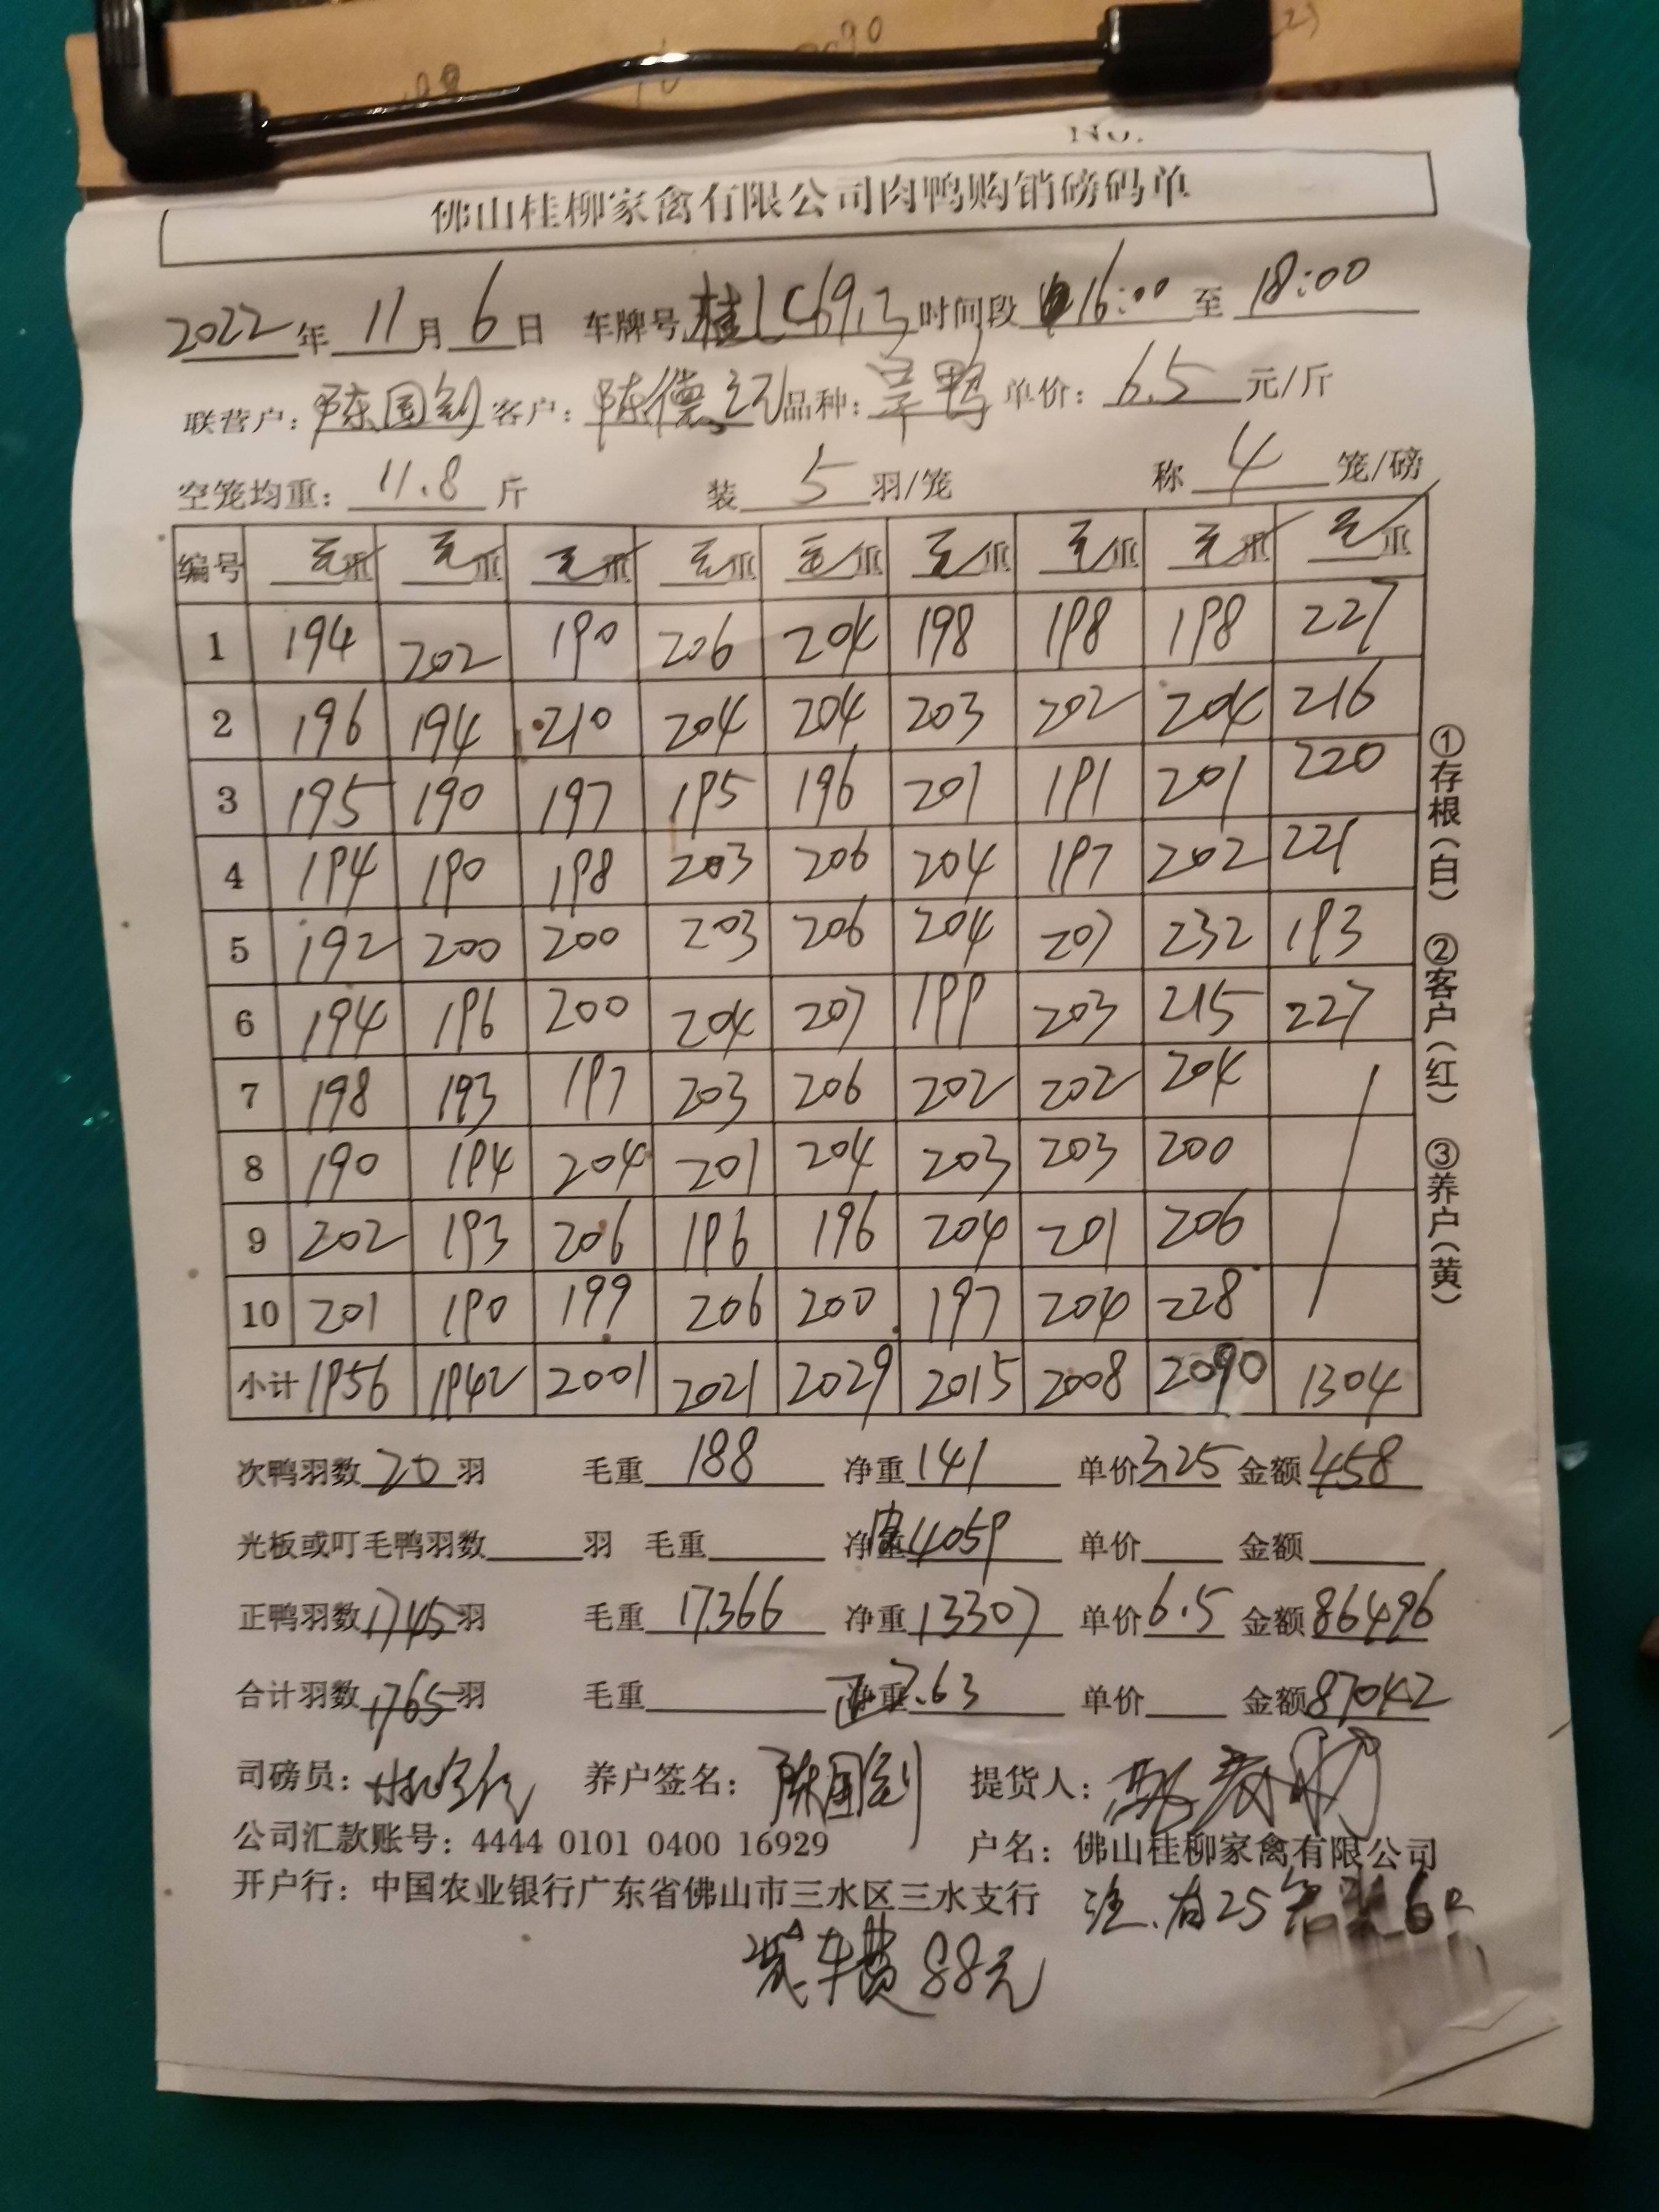 No.
佛山桂柳家禽有限公司肉鸭购销磅码单
2022年 11月 6日 车牌号 桂 时间段 16:00 至 18:00
联营户: 陈国钊 客户: 陈德 品种: 旱鸭 单价: 6.5 元/斤
空笼均重: 11.8 斤 装 5 羽/笼 称 4 笼/磅
编号 毛重 毛重 毛重 毛重 毛重 毛重 毛重 毛重 毛重
1 194 202 190 206 204 198 198 198 227
2 196 194 210 204 204 203 202 204 216
3 195 190 197 195 196 201 191 201 220
4 194 190 198 203 206 204 197 202 221
5 192 200 200 203 206 204 207 232 193
6 194 196 200 204 207 199 203 215 227
7 198 193 197 203 206 202 202 204
8 190 194 204 201 204 203 203 200
9 202 193 206 196 196 204 201 206
10 201 190 199 206 200 197 204 228
小计 1956 1942 2001 2021 2029 2015 2008 2090 1304
次鸭羽数 20 羽 毛重 188 净重 141 单价 3.25 金额 458
光板或叮毛鸭羽数 羽 毛重 皮重 4059 单价 金额
正鸭羽数 1745 羽 毛重 17366 净重 13307 单价 6.5 金额 86496
合计羽数 1765 羽 毛重 重 7.63 单价 金额 87042
司磅员: 养户签名: 陈国钊 提货人:
公司汇款账号: 4444 0101 0400 16929 户名: 佛山桂柳家禽有限公司
开户行: 中国农业银行广东省佛山市三水区三水支行 注.有25笼装6只
装车费88元
①存根(白) ②客户(红) ③养户(黄)